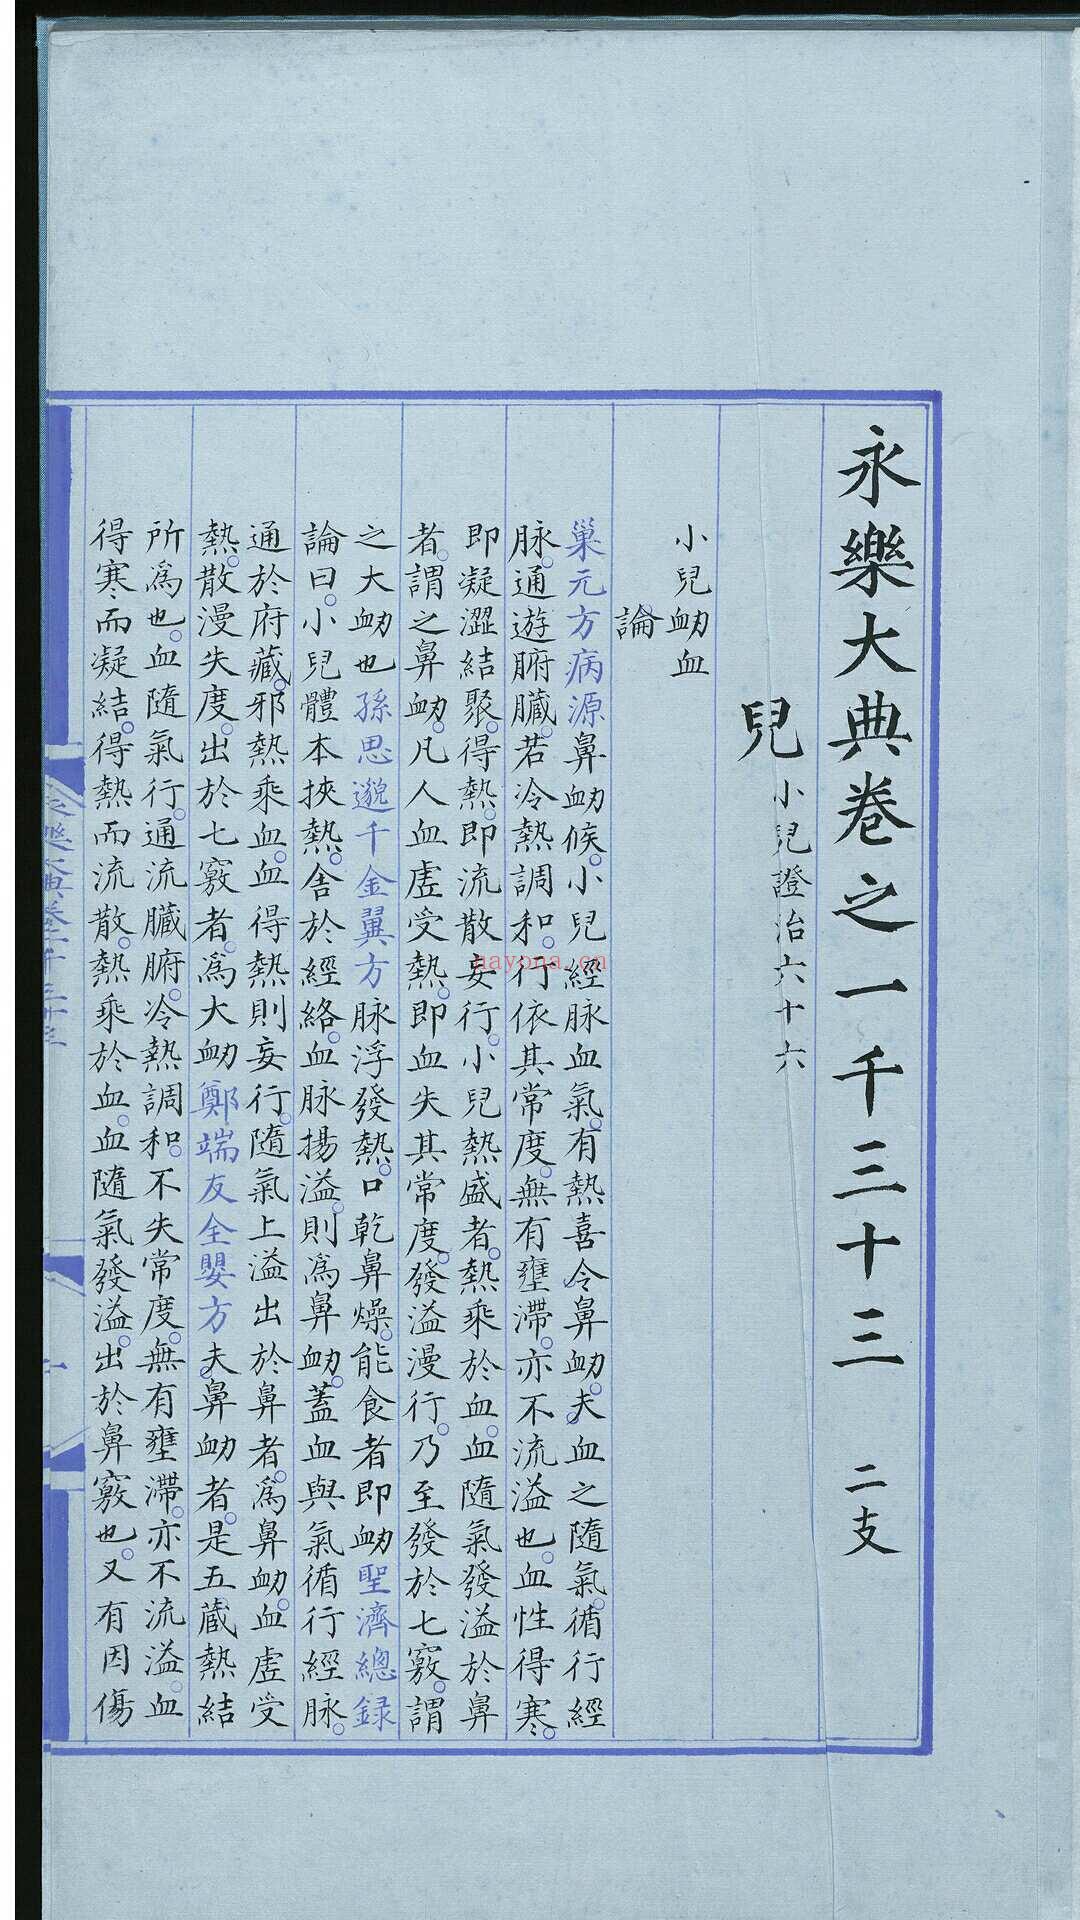 永樂大典卷之一千三十三 二支
兒 小兒證治六十六
小兒衂血
論
巢元方病源鼻衂候。小兒經脉血氣。有熱喜令鼻衂。夫血之隨氣。循行經
脉。通遊腑臟。若冷熱調和。行依其常度。無有壅滯。亦不流溢也。血性得寒。
即凝澀結聚。得熱。即流散妄行。小兒熱盛者。熱乘於血。血隨氣發溢於鼻
者。謂之鼻衂。凡人血虗受熱。即血失其常度。發溢漫行。乃至發於七竅。謂
之大衂也孫思邈千金翼方脉浮發熱。口乾鼻燥。能食者即衂聖濟總録
論曰。小兒體本挾熱。舍於經絡。血脉揚溢。則爲鼻衂。蓋血與氣循行經脉。
通於府藏。邪熱乘血。血得熱則妄行。隨氣上溢出於鼻者。爲鼻衂。血虗受
熱。散漫失度。出於七竅者。爲大衂鄭端友全嬰方夫鼻衂者。是五蔵熱結
所爲也。血隨氣行。通流臟腑。冷熱調和。不失常度。無有壅滯。亦不流溢。血
得寒而凝結。得熱而流散。熱乘於血。血隨氣發溢。出於鼻竅也。又有因傷
nayona.cn